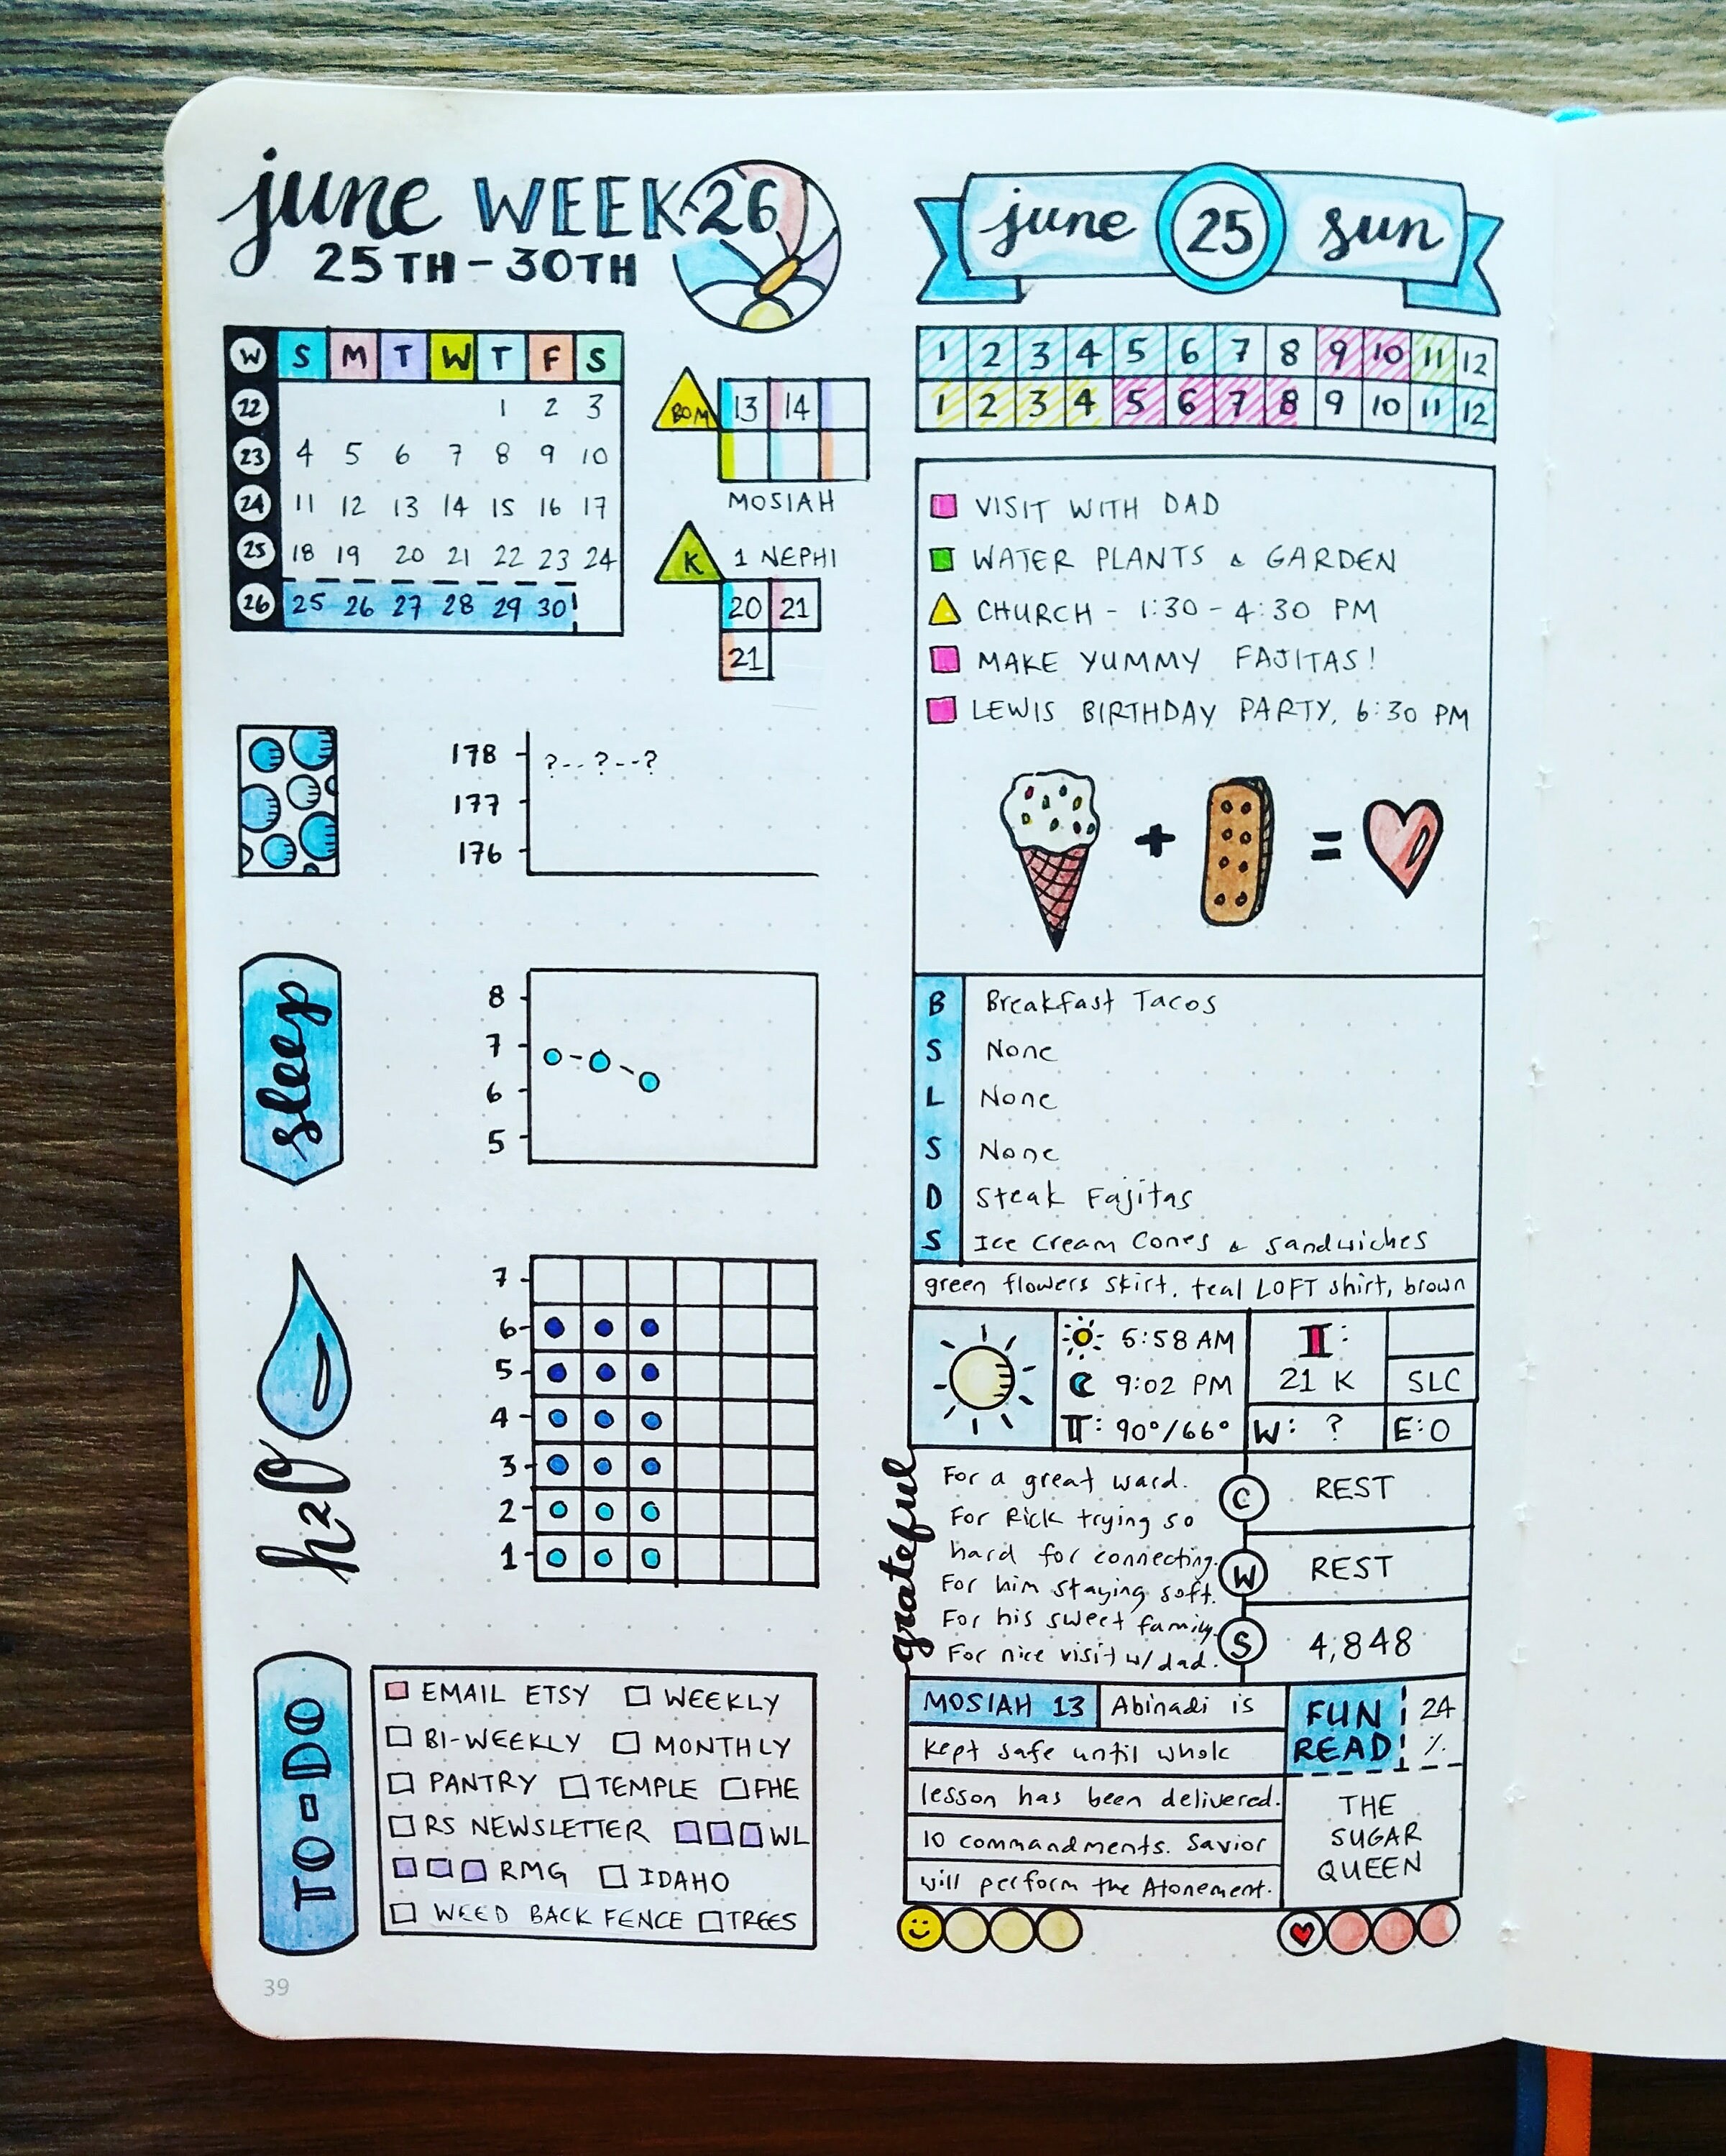 june WEEK 26
25TH - 30TH
W S M T W T F S
22 1 2 3
23 4 5 6 7 8 9 10
24 11 12 13 14 15 16 17
25 18 19 20 21 22 23 24
26 25 26 27 28 29 30
BOM 13 14
MOSIAH
K 1 NEPHI
20 21
21
178 ?--?--?
177
176
sleep
8
7
6
5
h2O
7
6
5
4
3
2
1
TO-DO
EMAIL ETSY WEEKLY
BI-WEEKLY MONTHLY
PANTRY TEMPLE FHE
RS NEWSLETTER WL
RMG IDAHO
WEED BACK FENCE TREES
39
june 25 sun
1 2 3 4 5 6 7 8 9 10 11 12
1 2 3 4 5 6 7 8 9 10 11 12
VISIT WITH DAD
WATER PLANTS & GARDEN
CHURCH - 1:30 - 4:30 PM
MAKE YUMMY FAJITAS!
LEWIS BIRTHDAY PARTY, 6:30 PM
+ =
B Breakfast Tacos
S None
L None
S None
D Steak Fajitas
S Ice Cream Cones & Sandwiches
green flowers skirt, teal LOFT shirt, brown
5:58 AM
9:02 PM
T: 90°/66°
I:
21 K SLC
W: ? E:0
grateful
For a great ward.
For Rick trying so
hard for connecting.
For him staying soft.
For his sweet family.
For nice visit w/ dad.
C REST
W REST
S 4,848
MOSIAH 13 Abinadi is
kept safe until whole
lesson has been delivered.
10 commandments. Savior
will perform the Atonement.
FUN READ 24 %
THE
SUGAR
QUEEN